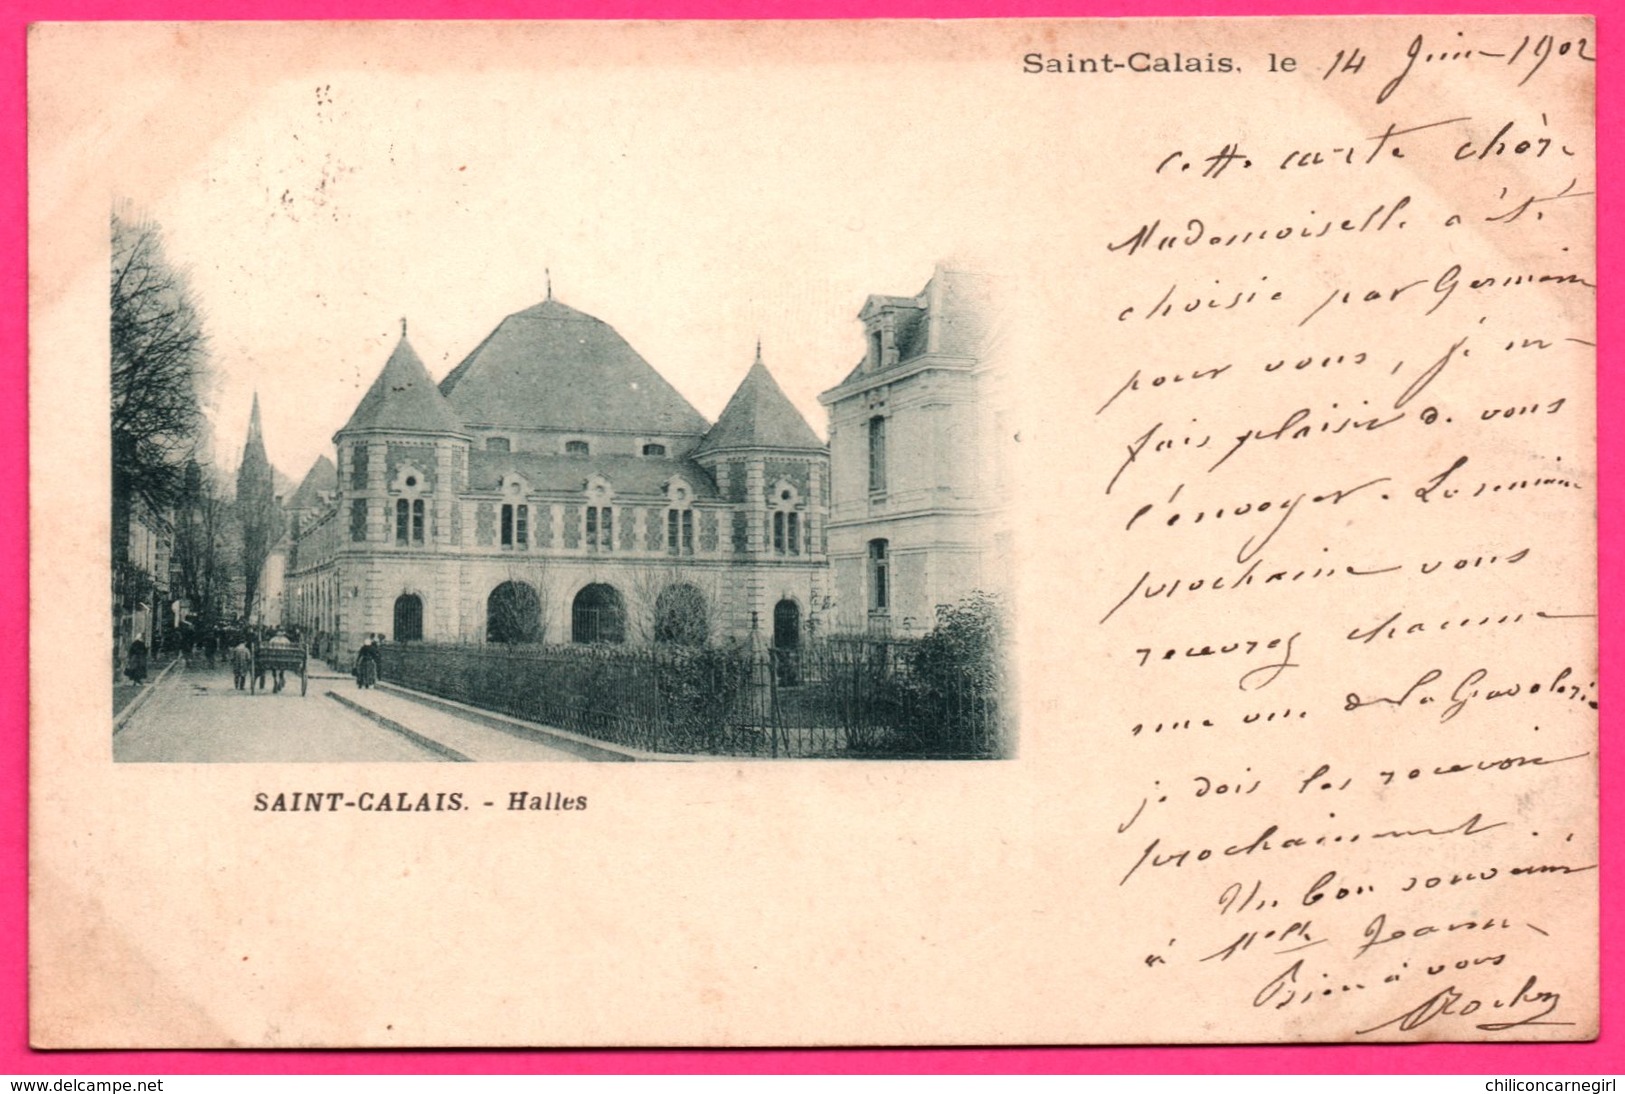 Saint-Calais, le 14 Juin 1902
Cette carte chère
Mademoiselle a été
choisie par Germaine
pour vous, je me
fais plaisir de vous
l'envoyer. La semaine
prochaine vous
recevrez chacune
une vue de la
je dois les recevoir
prochainement.
Un bon souvenir
à Melle Jeanne
Bien à vous
Rochon
SAINT-CALAIS. - Halles
www.delcampe.net
chiliconcarnegirl